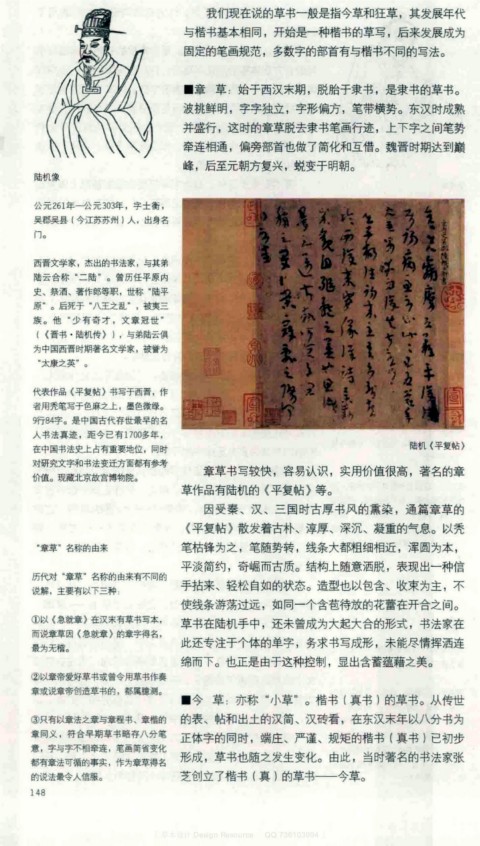 我们现在说的草书一般是指今草和狂草，其发展年代
与楷书基本相同，开始是一种楷书的草写，后来发展成为
固定的笔画规范，多数字的部首有与楷书不同的写法。
■章　草：始于西汉末期，脱胎于隶书，是隶书的草书。
波挑鲜明，字字独立，字形偏方，笔带横势。东汉时成熟
并盛行，这时的章草脱去隶书笔画行迹，上下字之间笔势
牵连相通，偏旁部首也做了简化和互借。魏晋时期达到巅
峰，后至元朝方复兴，蜕变于明朝。
陆机像
公元261年—公元303年，字士衡，
吴郡吴县（今江苏苏州）人，出身名
门。
西晋文学家，杰出的书法家，与其弟
陆云合称“二陆”。曾历任平原内
史、祭酒、著作郎等职，世称“陆平
原”。后死于“八王之乱”，被夷三
族。他“少有奇才，文章冠世”
（《晋书·陆机传》），与弟陆云俱
为中国西晋时期著名文学家，被誉为
“太康之英”。
代表作品《平复帖》书写于西晋，作
者用秃笔写于色麻之上，墨色微绿。
9行84字。是中国古代存世最早的名
人书法真迹，距今已有1700多年，
在中国书法史上占有重要地位，同时
对研究文字和书法变迁方面都有参考
价值。现藏北京故宫博物院。
“章草”名称的由来
历代对“章草”名称的由来有不同的
说解，主要有以下三种：
①以《急就章》在汉末有草书写本，
而说章草因《急就章》的章字得名，
最为无稽。
②以章帝爱好草书或曾令用草书作奏
章或说章帝创造草书的，都属臆测。
③只有以章法之章与章程书、章楷的
章同义，符合早期草书略存八分笔
意，字与字不相牵连，笔画简省变化
都有章法可循的事实，作为章草得名
的说法最令人信服。
148
陆机《平复帖》
章草书写较快，容易认识，实用价值很高，著名的章
草作品有陆机的《平复帖》等。
因受秦、汉、三国时古厚书风的熏染，通篇章草的
《平复帖》散发着古朴、淳厚、深沉、凝重的气息。以秃
笔枯锋为之，笔随势转，线条大都粗细相近，浑圆为本，
平淡简约，奇崛而古质。结构上随意洒脱，表现出一种信
手拈来、轻松自如的状态。造型也以包含、收束为主，不
使线条游荡过远，如同一个含苞待放的花蕾在开合之间。
草书在陆机手中，还未曾成为大起大合的形式，书法家在
此还专注于个体的单字，务求书写成形，未能尽情挥洒连
绵而下。也正是由于这种控制，显出含蓄蕴藉之美。
■今　草：亦称“小草”。楷书（真书）的草书。从传世
的表、帖和出土的汉简、汉砖看，在东汉末年以八分书为
正体字的同时，端庄、严谨、规矩的楷书（真书）已初步
形成，草书也随之发生变化。由此，当时著名的书法家张
芝创立了楷书（真）的草书——今草。